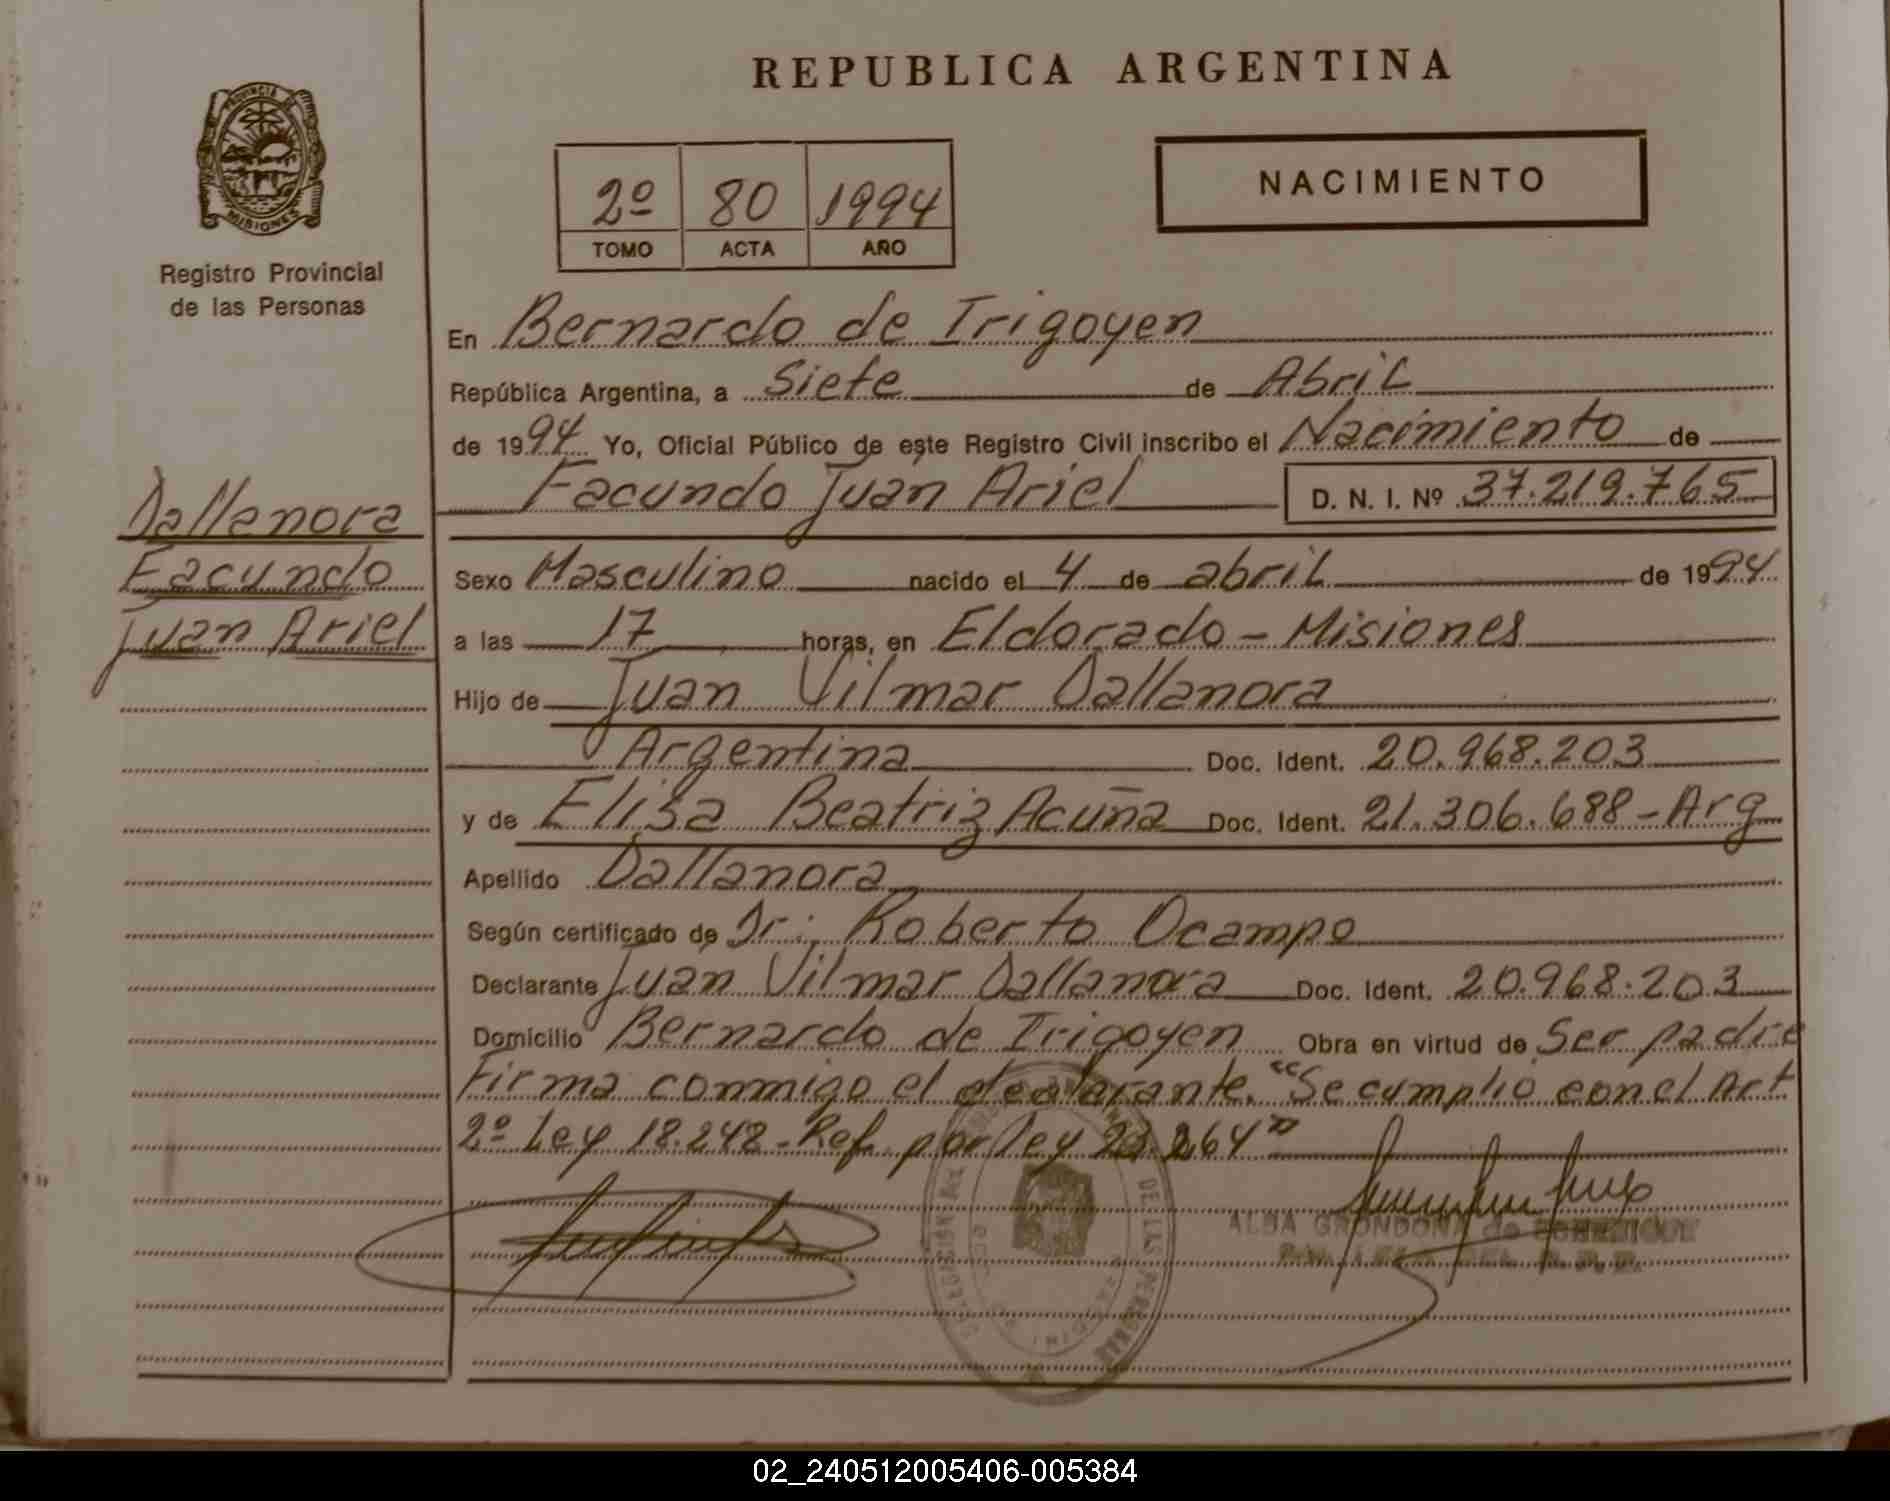 REPUBLICA ARGENTINA
PROVINCIA DE
MISIONES
Registro Provincial
de las Personas
2º 80 1994
TOMO ACTA AÑO
NACIMIENTO
Dallanora
Facundo
Juan Ariel
En Bernardo de Irigoyen
República Argentina, a Siete de Abril
de 1994 Yo, Oficial Público de este Registro Civil inscribo el Nacimiento de
Facundo Juan Ariel D. N. I. Nº 37.219.765
Sexo Masculino nacido el 4 de abril de 1994
a las 17 horas, en Eldorado - Misiones
Hijo de Juan Vilmar Dallanora
Argentina Doc. Ident. 20.968.203
y de Elisa Beatriz Acuña Doc. Ident. 21.306.688 - Arg
Apellido Dallanora
Según certificado de Dr: Roberto Ocampo
Declarante Juan Vilmar Dallanora Doc. Ident. 20.968.203
Domicilio Bernardo de Irigoyen Obra en virtud de Ser padre
Firma conmigo el declarante. "Se cumplio con el Art
2º Ley 18.248 - Ref. por ley
DE LAS PERSONAS
ALBA GRONDONA de
02_240512005406-005384